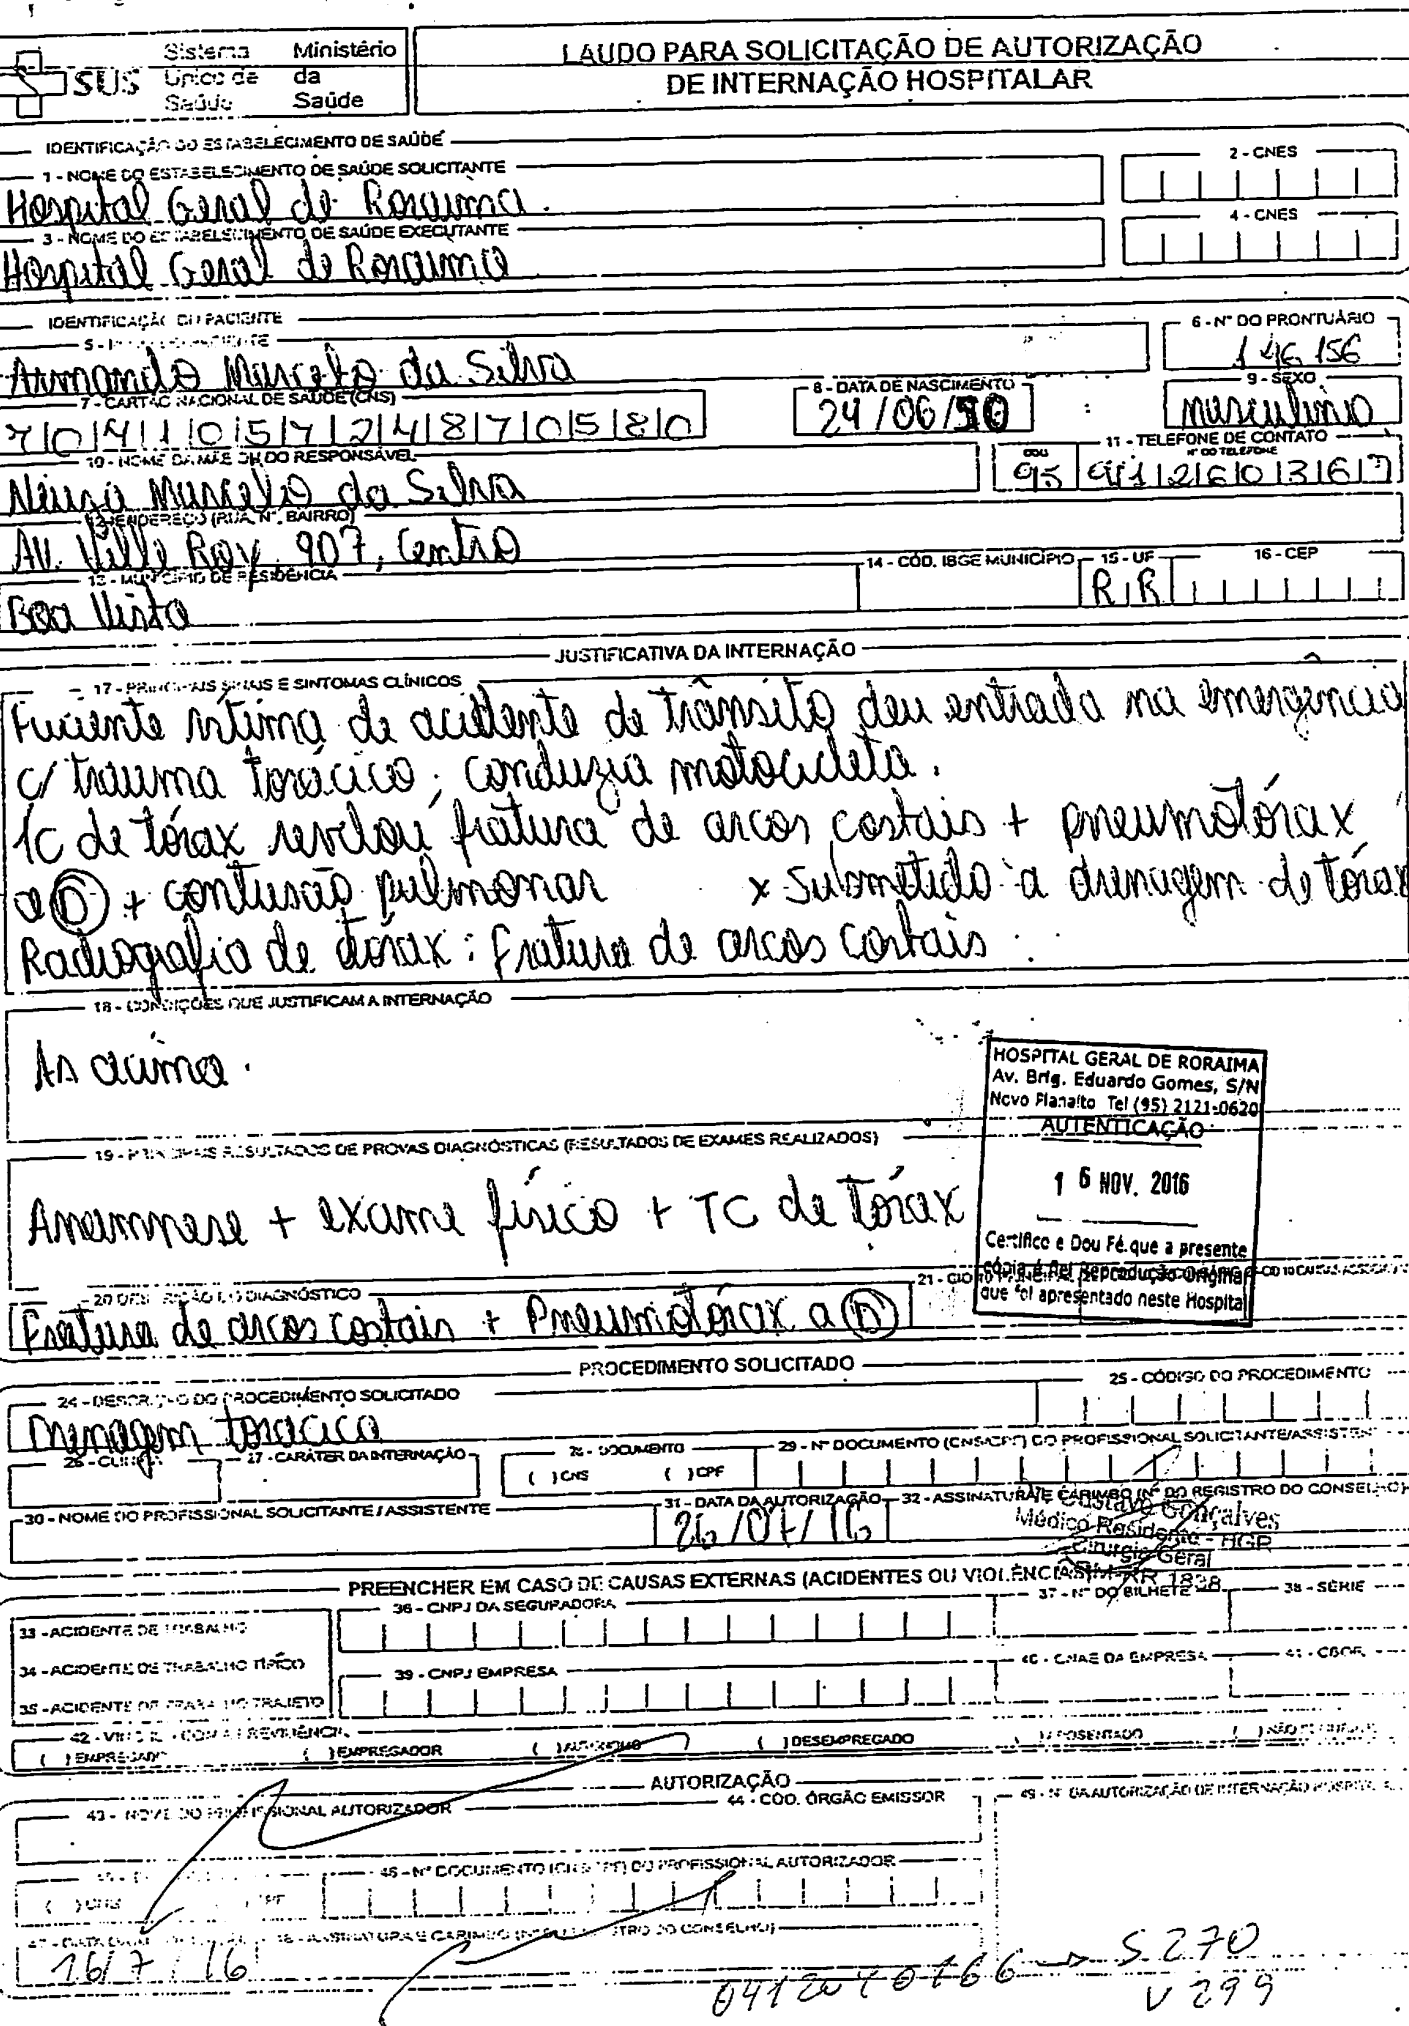 SUS
Sistema Único de Saúde
Ministério da Saúde
LAUDO PARA SOLICITAÇÃO DE AUTORIZAÇÃO
DE INTERNAÇÃO HOSPITALAR
IDENTIFICAÇÃO DO ESTABELECIMENTO DE SAÚDE
1 - NOME DO ESTABELECIMENTO DE SAÚDE SOLICITANTE
2 - CNES
Hospital Geral de Roraima.
3 - NOME DO ESTABELECIMENTO DE SAÚDE EXECUTANTE
4 - CNES
Hospital Geral de Roraima
IDENTIFICAÇÃO DO PACIENTE
6 - N° DO PRONTUÁRIO
146156
Armando Marcelo da Silva
7 - CARTÃO NACIONAL DE SAÚDE (CNS)
8 - DATA DE NASCIMENTO
9 - SEXO
704105724870580
24/06/
masculino
10 - NOME DA MÃE OU DO RESPONSÁVEL
11 - TELEFONE DE CONTATO
DDD
N° DO TELEFONE
Neuza Marcelo da Silva
95
12 - ENDEREÇO (RUA, N°, BAIRRO)
Av. Ville Roy, 907, Centro
13 - MUNICÍPIO DE RESIDÊNCIA
14 - CÓD. IBGE MUNICÍPIO
15 - UF
16 - CEP
Boa Vista
RR
JUSTIFICATIVA DA INTERNAÇÃO
17 - PRINCIPAIS SINAIS E SINTOMAS CLÍNICOS
Paciente vítima de acidente de trânsito deu entrada na emergência
c/ trauma torácico; conduzia motocicleta.
TC de tórax revelou fratura de arcos costais + pneumotórax
a D + contusão pulmonar x submetido a drenagem de tórax
Radiografia de tórax: fratura de arcos costais.
18 - CONDIÇÕES QUE JUSTIFICAM A INTERNAÇÃO
As acima.
HOSPITAL GERAL DE RORAIMA
Av. Brig. Eduardo Gomes, S/N
Novo Planalto Tel (95) 2121-0620
AUTENTICAÇÃO
16 NOV. 2016
Certifico e Dou Fé que a presente
cópia é fiel Reprodução Original
que foi apresentado neste Hospital
19 - PRINCIPAIS RESULTADOS DE PROVAS DIAGNÓSTICAS (RESULTADOS DE EXAMES REALIZADOS)
Anamnese + exame físico + TC de Tórax
20 DESCRIÇÃO DO DIAGNÓSTICO
Fratura de arcos costais + Pneumotórax a D
PROCEDIMENTO SOLICITADO
24 - DESCRIÇÃO DO PROCEDIMENTO SOLICITADO
25 - CÓDIGO DO PROCEDIMENTO
Drenagem torácica
26 - CLÍNICA
27 - CARÁTER DA INTERNAÇÃO
28 - DOCUMENTO
( ) CNS ( ) CPF
29 - N° DOCUMENTO (CNS/CPF) DO PROFISSIONAL SOLICITANTE/ASSISTENTE
30 - NOME DO PROFISSIONAL SOLICITANTE / ASSISTENTE
31 - DATA DA AUTORIZAÇÃO
32 - ASSINATURA E CARIMBO (N° DO REGISTRO DO CONSELHO)
26/07/16
Gustavo Gonçalves
Médico Residente - HGR
Cirurgia Geral
CRM-RR 1838
PREENCHER EM CASO DE CAUSAS EXTERNAS (ACIDENTES OU VIOLÊNCIAS)
33 - ACIDENTE DE TRABALHO
36 - CNPJ DA SEGURADORA
37 - N° DO BILHETE
38 - SÉRIE
34 - ACIDENTE DE TRABALHO TÍPICO
39 - CNPJ EMPRESA
40 - CNAE DA EMPRESA
41 - CBOR
35 - ACIDENTE DE TRABALHO TRAJETO
( ) EMPREGADO ( ) EMPREGADOR ( ) AUTÔNOMO ( ) DESEMPREGADO ( ) APOSENTADO
AUTORIZAÇÃO
43 - NOME DO PROFISSIONAL AUTORIZADOR
44 - CÓD. ÓRGÃO EMISSOR
49 - N° DA AUTORIZAÇÃO DE INTERNAÇÃO HOSPITALAR
46 - N° DOCUMENTO (CNS/CPF) DO PROFISSIONAL AUTORIZADOR
( ) CNS CPF
48 - ASSINATURA E CARIMBO
16/7/16
0412040166 → S 270
V 299